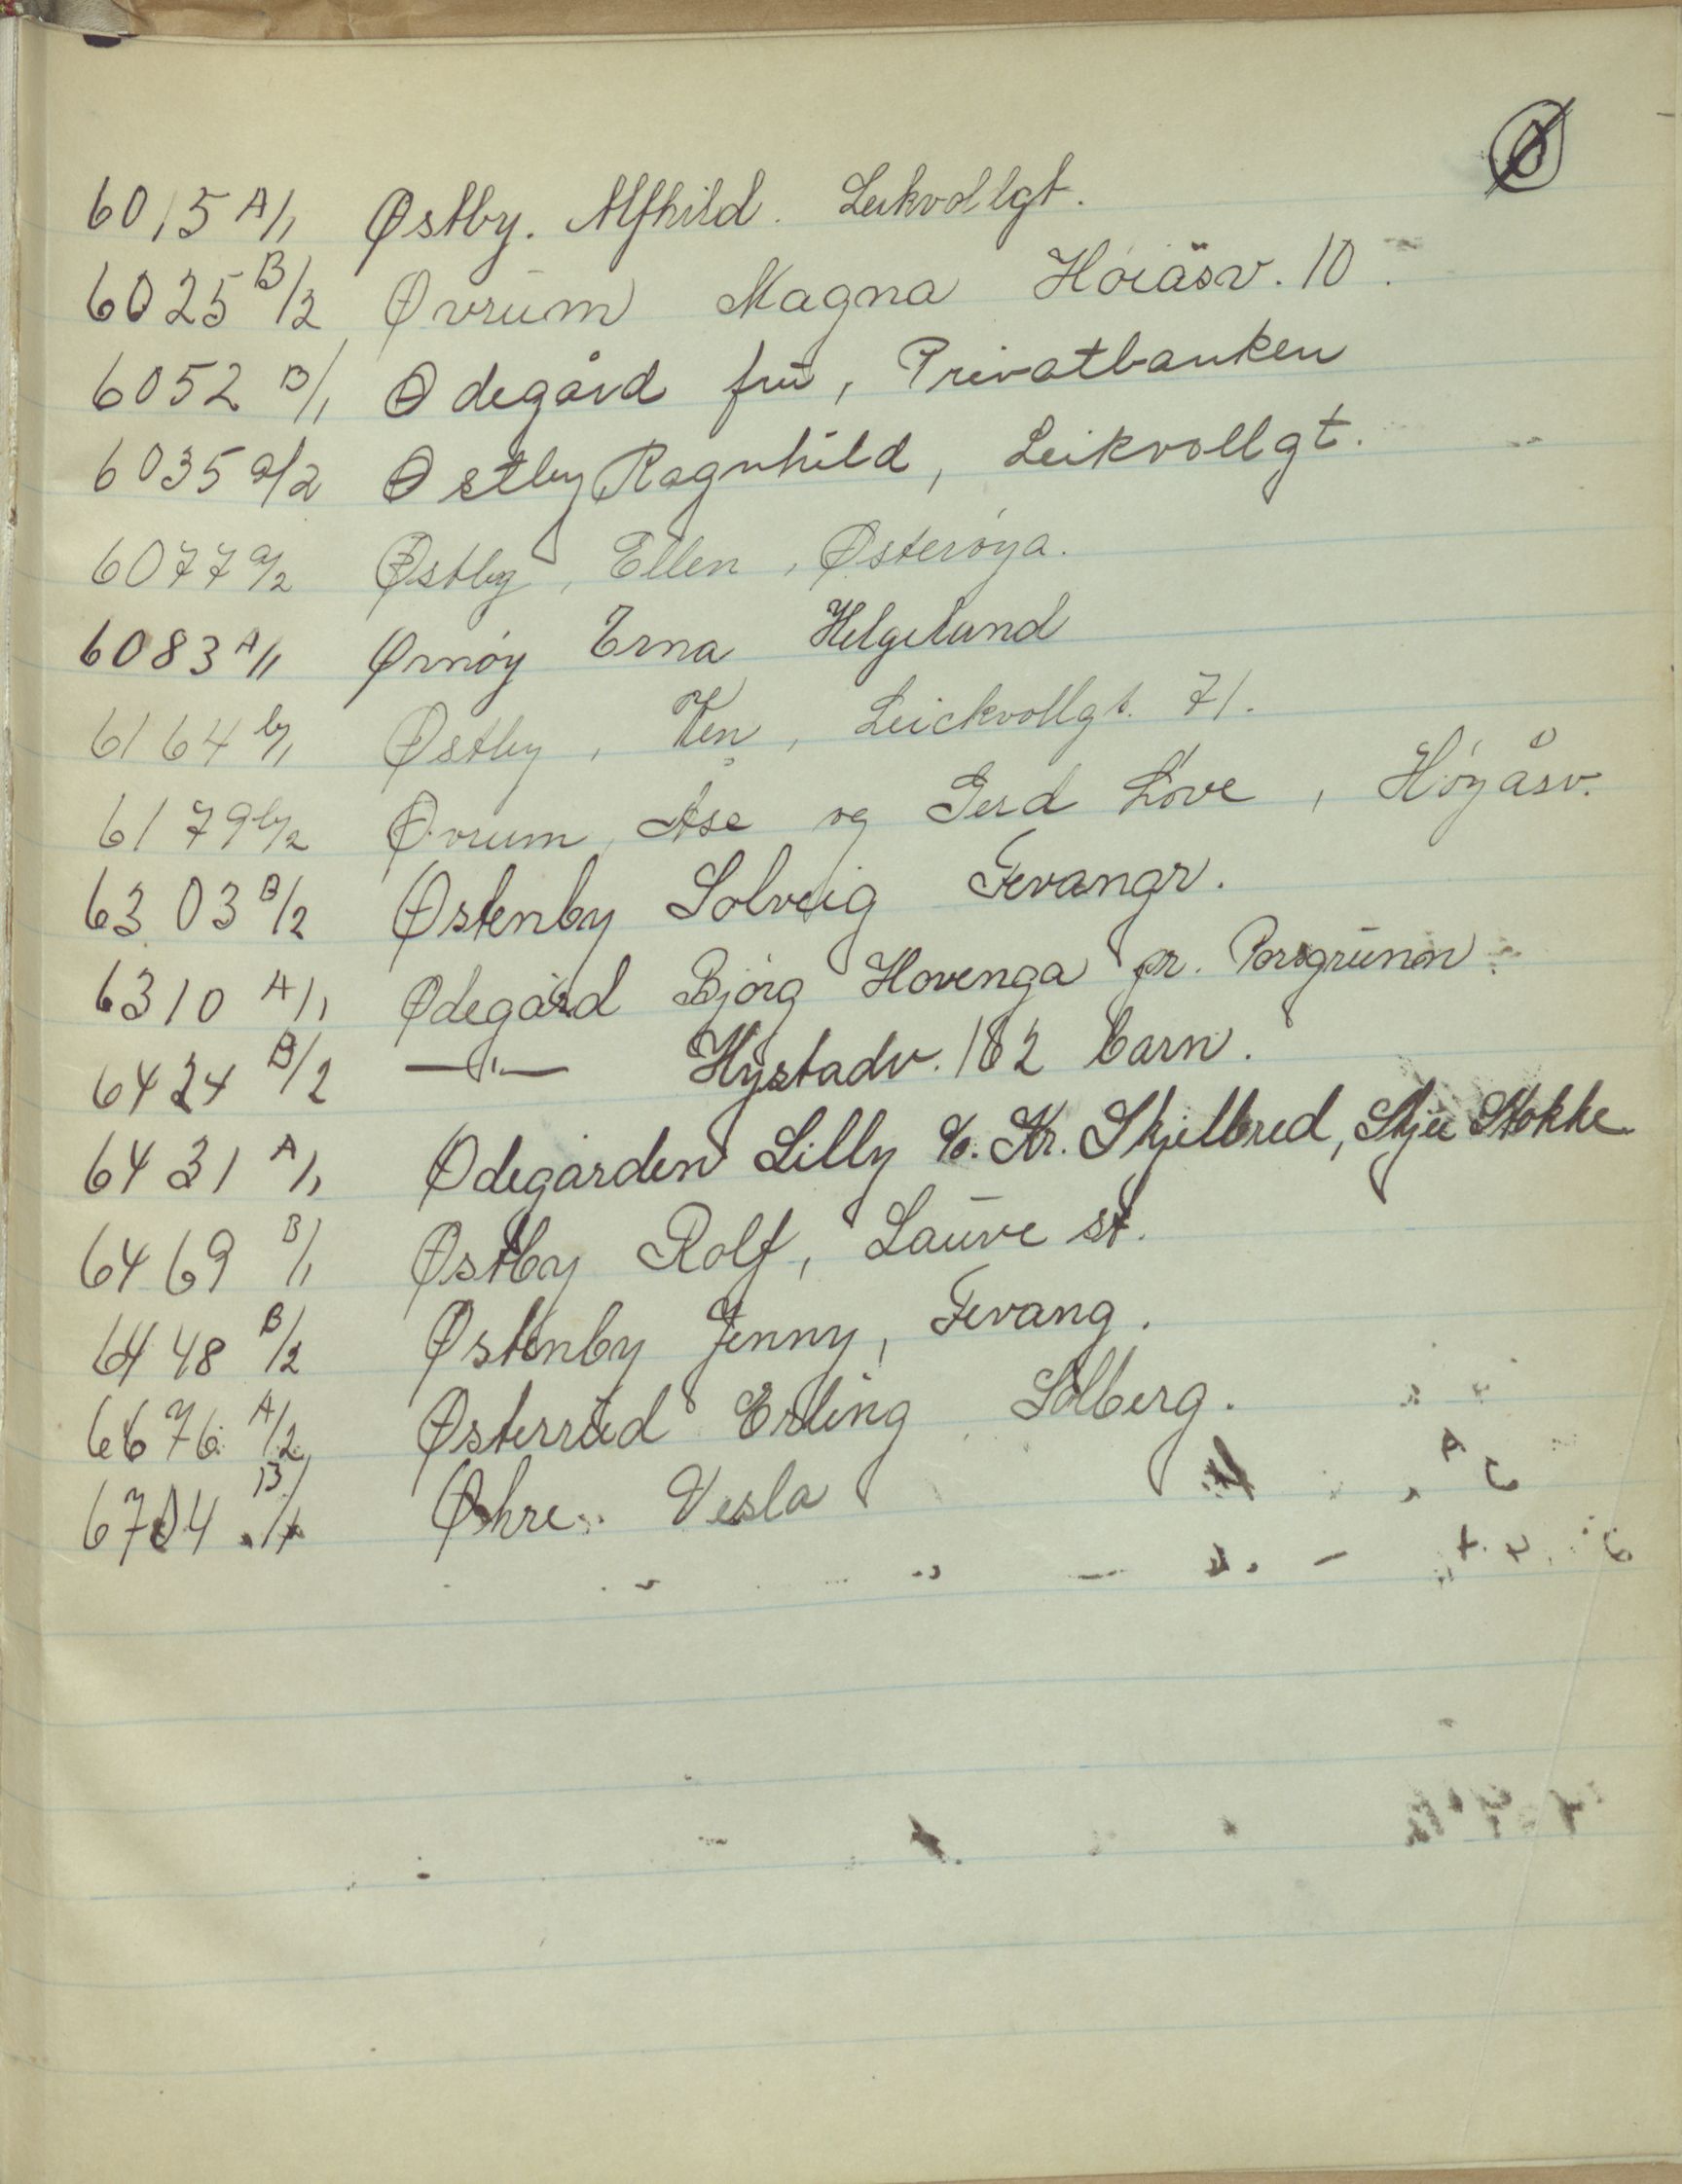 Ø
6015 A/1 Østby. Alfhild. Leikvollgt.
6025 B/2 Øvrum Magna Höiåsv. 10.
6052 B/1 Ødegård fru, Privatbanken
6035 a/2 Østby Ragnhild, Leikvollgt.
6077 a/2 Østby, Ellen, Østerøya.
6083 A/1 Ørnøy Erna Helgeland
6164 b/1 Østby, , Leickvollgt. 71.
6179 b/2 Øvrum, Åse og Gerd Löve, Höyåsv.
6303 B/2 Østenby Solveig Fevangr.
6310 A/1 Ødegård Bjórg Hovenga pr. Porsgrunn.
6424 B/2 —"— Hystadv. 182 barn.
6431 A/1 Ødegården Lilly c/o. Kr. Skjelbred, Skjee Stokke
6469 B/1 Østby Rolf, Lauve st.
6448 B/2 Østenby Jenny, Fevang.
6676 A/2 Østerrud Erling Solberg.
6704 B/1 Øhre. Vesla